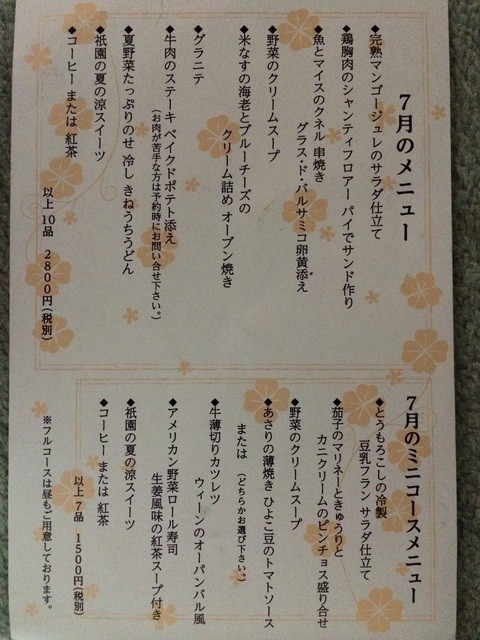 7月のメニュー
◆完熟マンゴージュレのサラダ仕立て
◆鶏胸肉のシャンティフロアー パイでサンド作り
◆魚とマイスのクネル 串焼き
グラス・ド・バルサミコ卵黄添え
◆野菜のクリームスープ
◆米なすの海老とブルーチーズの
クリーム詰め オーブン焼き
◆グラニテ
◆牛肉のステーキ ベイクドポテト添え
(お肉が苦手な方は予約時にお問い合せ下さい。)
◆夏野菜たっぷりのせ 冷し きねうちうどん
◆祇園の夏の涼スイーツ
◆コーヒー または 紅茶
以上 10品 2800円(税別)
7月のミニコースメニュー
◆とうもろこしの冷製
豆乳フラン サラダ仕立て
◆茄子のマリネーときゅうりと
カニクリームのピンチョス盛り合せ
◆野菜のクリームスープ
◆あさりの薄焼き ひよこ豆のトマトソース
または (どちらかお選び下さい。)
◆牛薄切りカツレツ
ウィーンのオーパンバル風
◆アメリカン野菜ロール寿司
生姜風味の紅茶スープ付き
◆祇園の夏の涼スイーツ
◆コーヒー または 紅茶
以上 7品 1500円(税別)
※フルコースは昼もご用意しております。